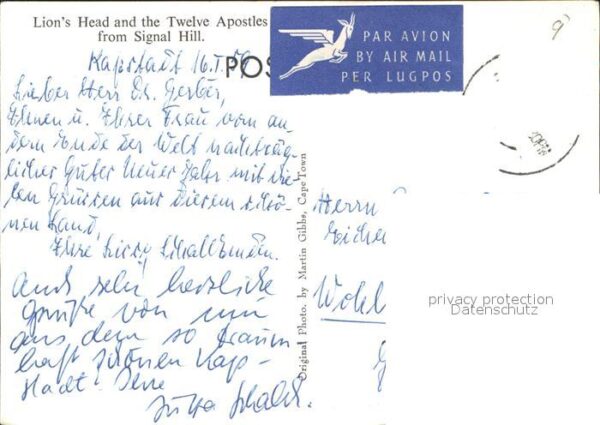 Lion's Head and the Twelve Apostles
from Signal Hill.
PAR AVION
BY AIR MAIL
PER LUGPOS
POS
Kapstadt 16.I.59
Lieber Herr Dr. Gerber,
Ihnen u. Ihrer Frau vom an-
dern Ende der Welt nachträg-
licher Guter Neuer Jahr mit vie-
len Grüssen aus diesem schö-
nen Land,
Ihre Lissy
Auch sehr herzliche
Grüße von mir
aus dem so traum-
haft schönen Kap-
stadt. Ihre
Jutta
Original Photo. by Martin Gibbs, Cape Town
Herrn
Eicher
Wohl
privacy protection
Datenschutz